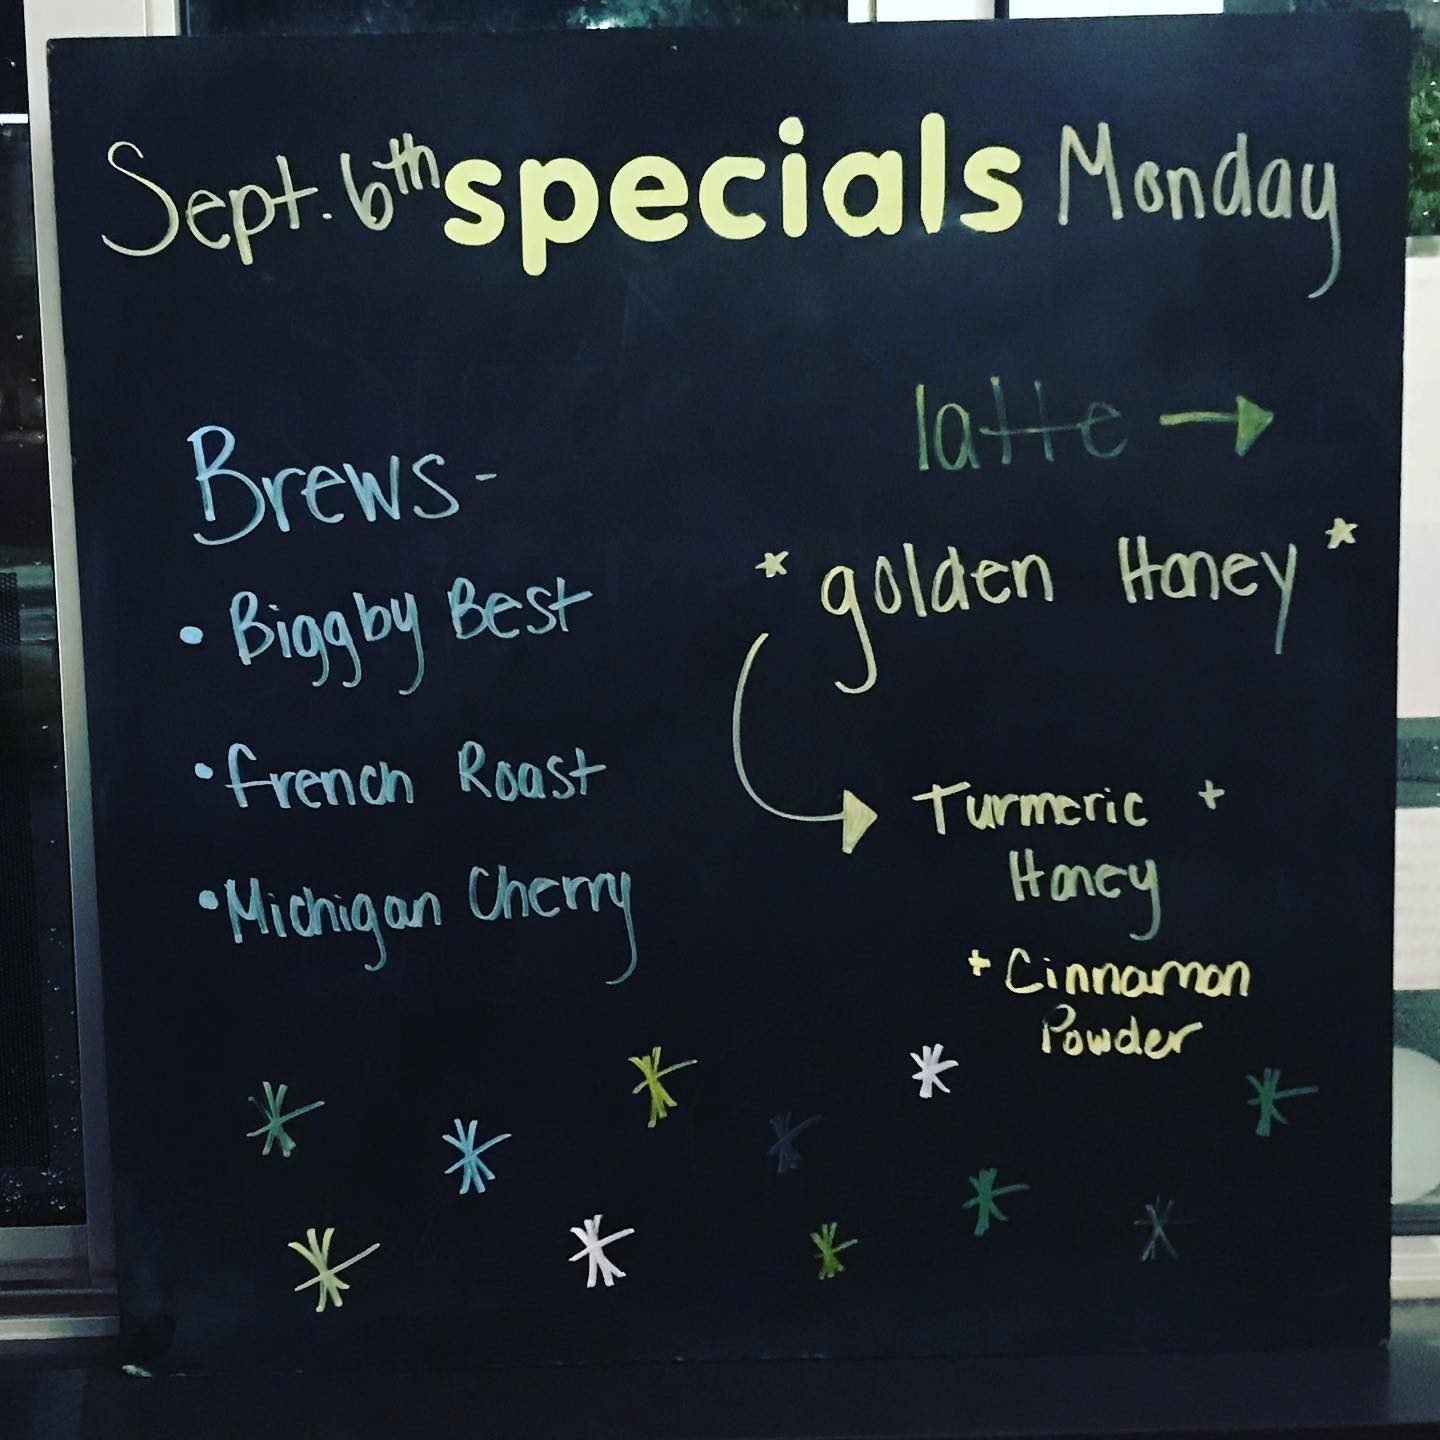 Sept. 6th specials Monday
Brews-
• Biggby Best
• French Roast
• Michigan Cherry
latte →
* golden Honey *
→ Turmeric +
Honey
+ Cinnamon
Powder